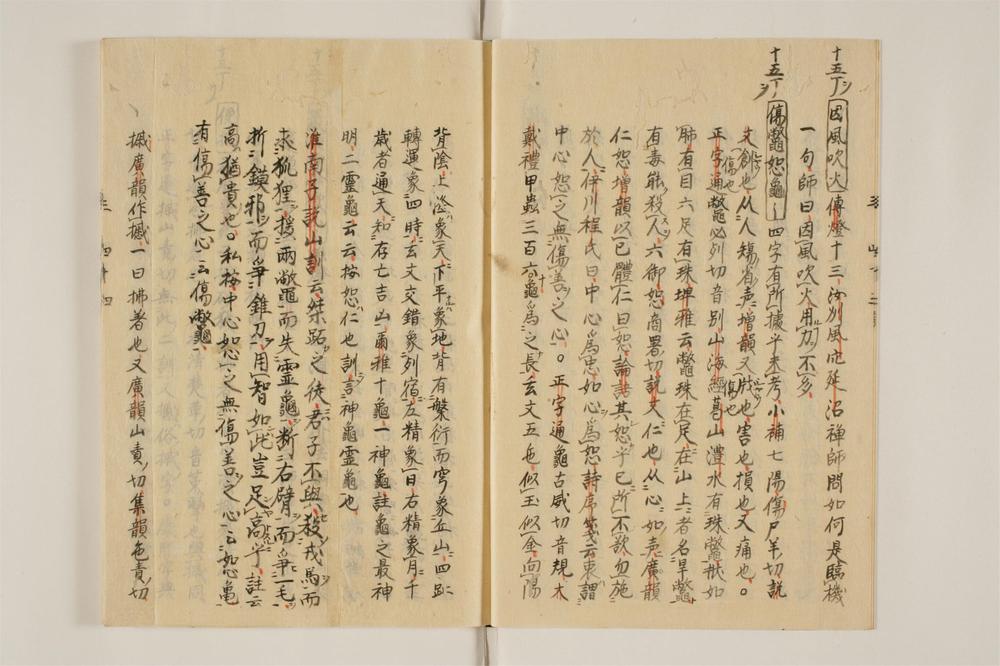 十五丁
因風吹火 傳燈十三汝州風穴延沼禅師問如何是臨機
一句師曰因風吹火用力不多
十五丁
傷鼈恕龜 四字有所據乎未考小補七陽傷尸羊切説
文創也从人𥏻省声増韻又戕也害也損也又痛也。
正字通鼈必列切音別山海經葛山澧水有珠鼈状如
肺有目六足有珠埤雅云鼈珠在足在山上者名旱鼈
有毒能殺人六御恕商署切説文仁也从心如声廣韻
仁恕増韻以己體仁曰恕論語其恕乎己所不欲勿施
於人伊川程氏曰中心爲忠如心爲恕詩序箋云衷謂
中心恕之無傷善之心。正字通龜古威切音規大
戴禮甲蟲三百六十龜爲之長玄文五色似玉似金向陽
背陰上隆象天下平象地背有槃衍而穹象丘山四趾
轉運象四時玄文交錯象列宿左精象日右精象月千
歳者通天知存亡吉凶爾雅十龜一神龜註龜之最神
明二靈龜云云按恕仁也訓言神龜靈龜也
淮南子説山訓云桀跖之徒君子不與殺戎馬而
求狐狸援兩鼈而失靈龜断右臂而爭一毛
折鏌邪而爭錐刀用智如此豈足高乎註云
高猶貴也。私按中心恕之無傷善之心云恕龜
有傷善之心云傷鼈
摵廣韻作摵一曰拂著也又廣韻山責切集韻色責切